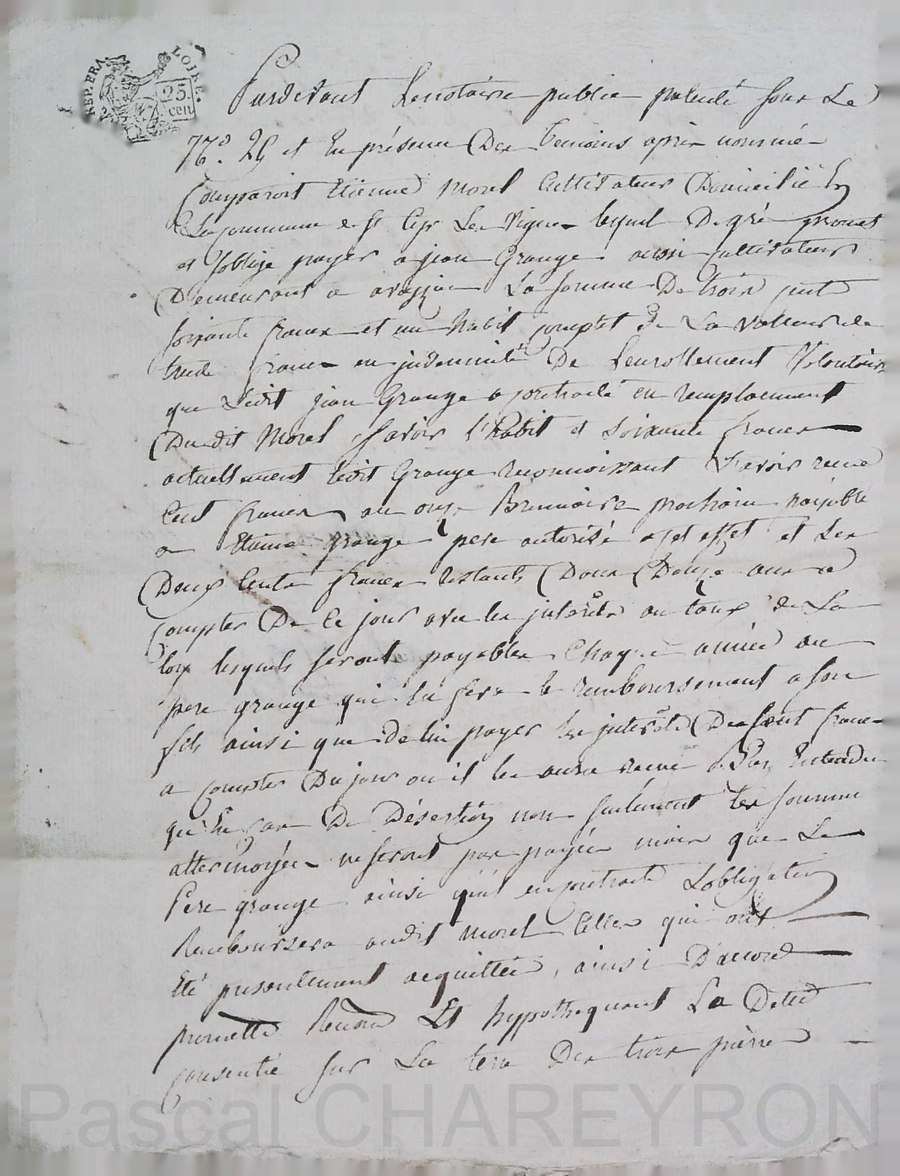 REP. FRA. LOIRE.
25
cen
Pardevant Le notaire public patenté sous Le
n.o 29 et En présence Des temoins après nommés
Comparoit Etienne Morel Cultivateur Domicilié En
La Commune de St Cyr Les Vignes lequel De gré promet
et s'oblige payer a jean Grange aussi Cultivateur
Demeurant a La somme De trois cent
soixante francs et un habit complet de La valleur de
trente francs en indemnité De L'enrollement Volontaire
que Ledit jean Grange a contracté en remplacement
Du dit Morel, Savoir l'habit et soixante francs
actuellement ledit Grange reconnoissant L'avoir reçu
Cent francs au onze Brumaire prochain payable
a Etienne Grange pere autorisé a cet effet et Les
Deux Cents francs restants Dans Douze ans a
compter De Ce jour avec les intérêts au taux de La
loy lesquels seront payables Chaque année au
pere grange qui en fera le remboursement a son
fils ainsi que de lui payer Les intérêts Des Cent francs
a compter Du jour ou il les aura reçus, Bien Entendu
qu'En Cas De Désertion non seulement les sommes
attermoyées ne seront pas payées mais que Le
Pere grange ainsi qu'il en contracte L'obligation
Remboursera audit Morel Celles qui ont
Eté presentement acquittées, ainsi D'accord
promette Renon Et hypothequant La Dette
consentie sur La terre Des trois pierres
Pascal CHAREYRON